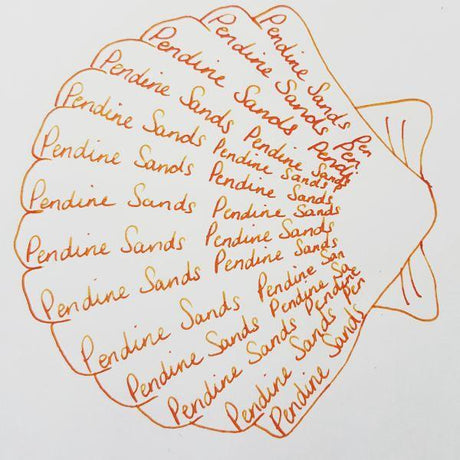 Pendine Sands Pen
Pendine Sands Pen
Pendine Sands Pendin
Pendine Sands Pendine Sands
Pendine Sands Pendine Sands
Pendine Sands Pendine Sands
Pendine Sands Pendine Sands
Pendine Sands Pendine Sands
Pendine Sands Pendine Sands
Pendine Sands Pendine San
Pendine Sands Pendine Sa
Pendine Sands Pendine
Pendine Sands Pen
Pendine Sands